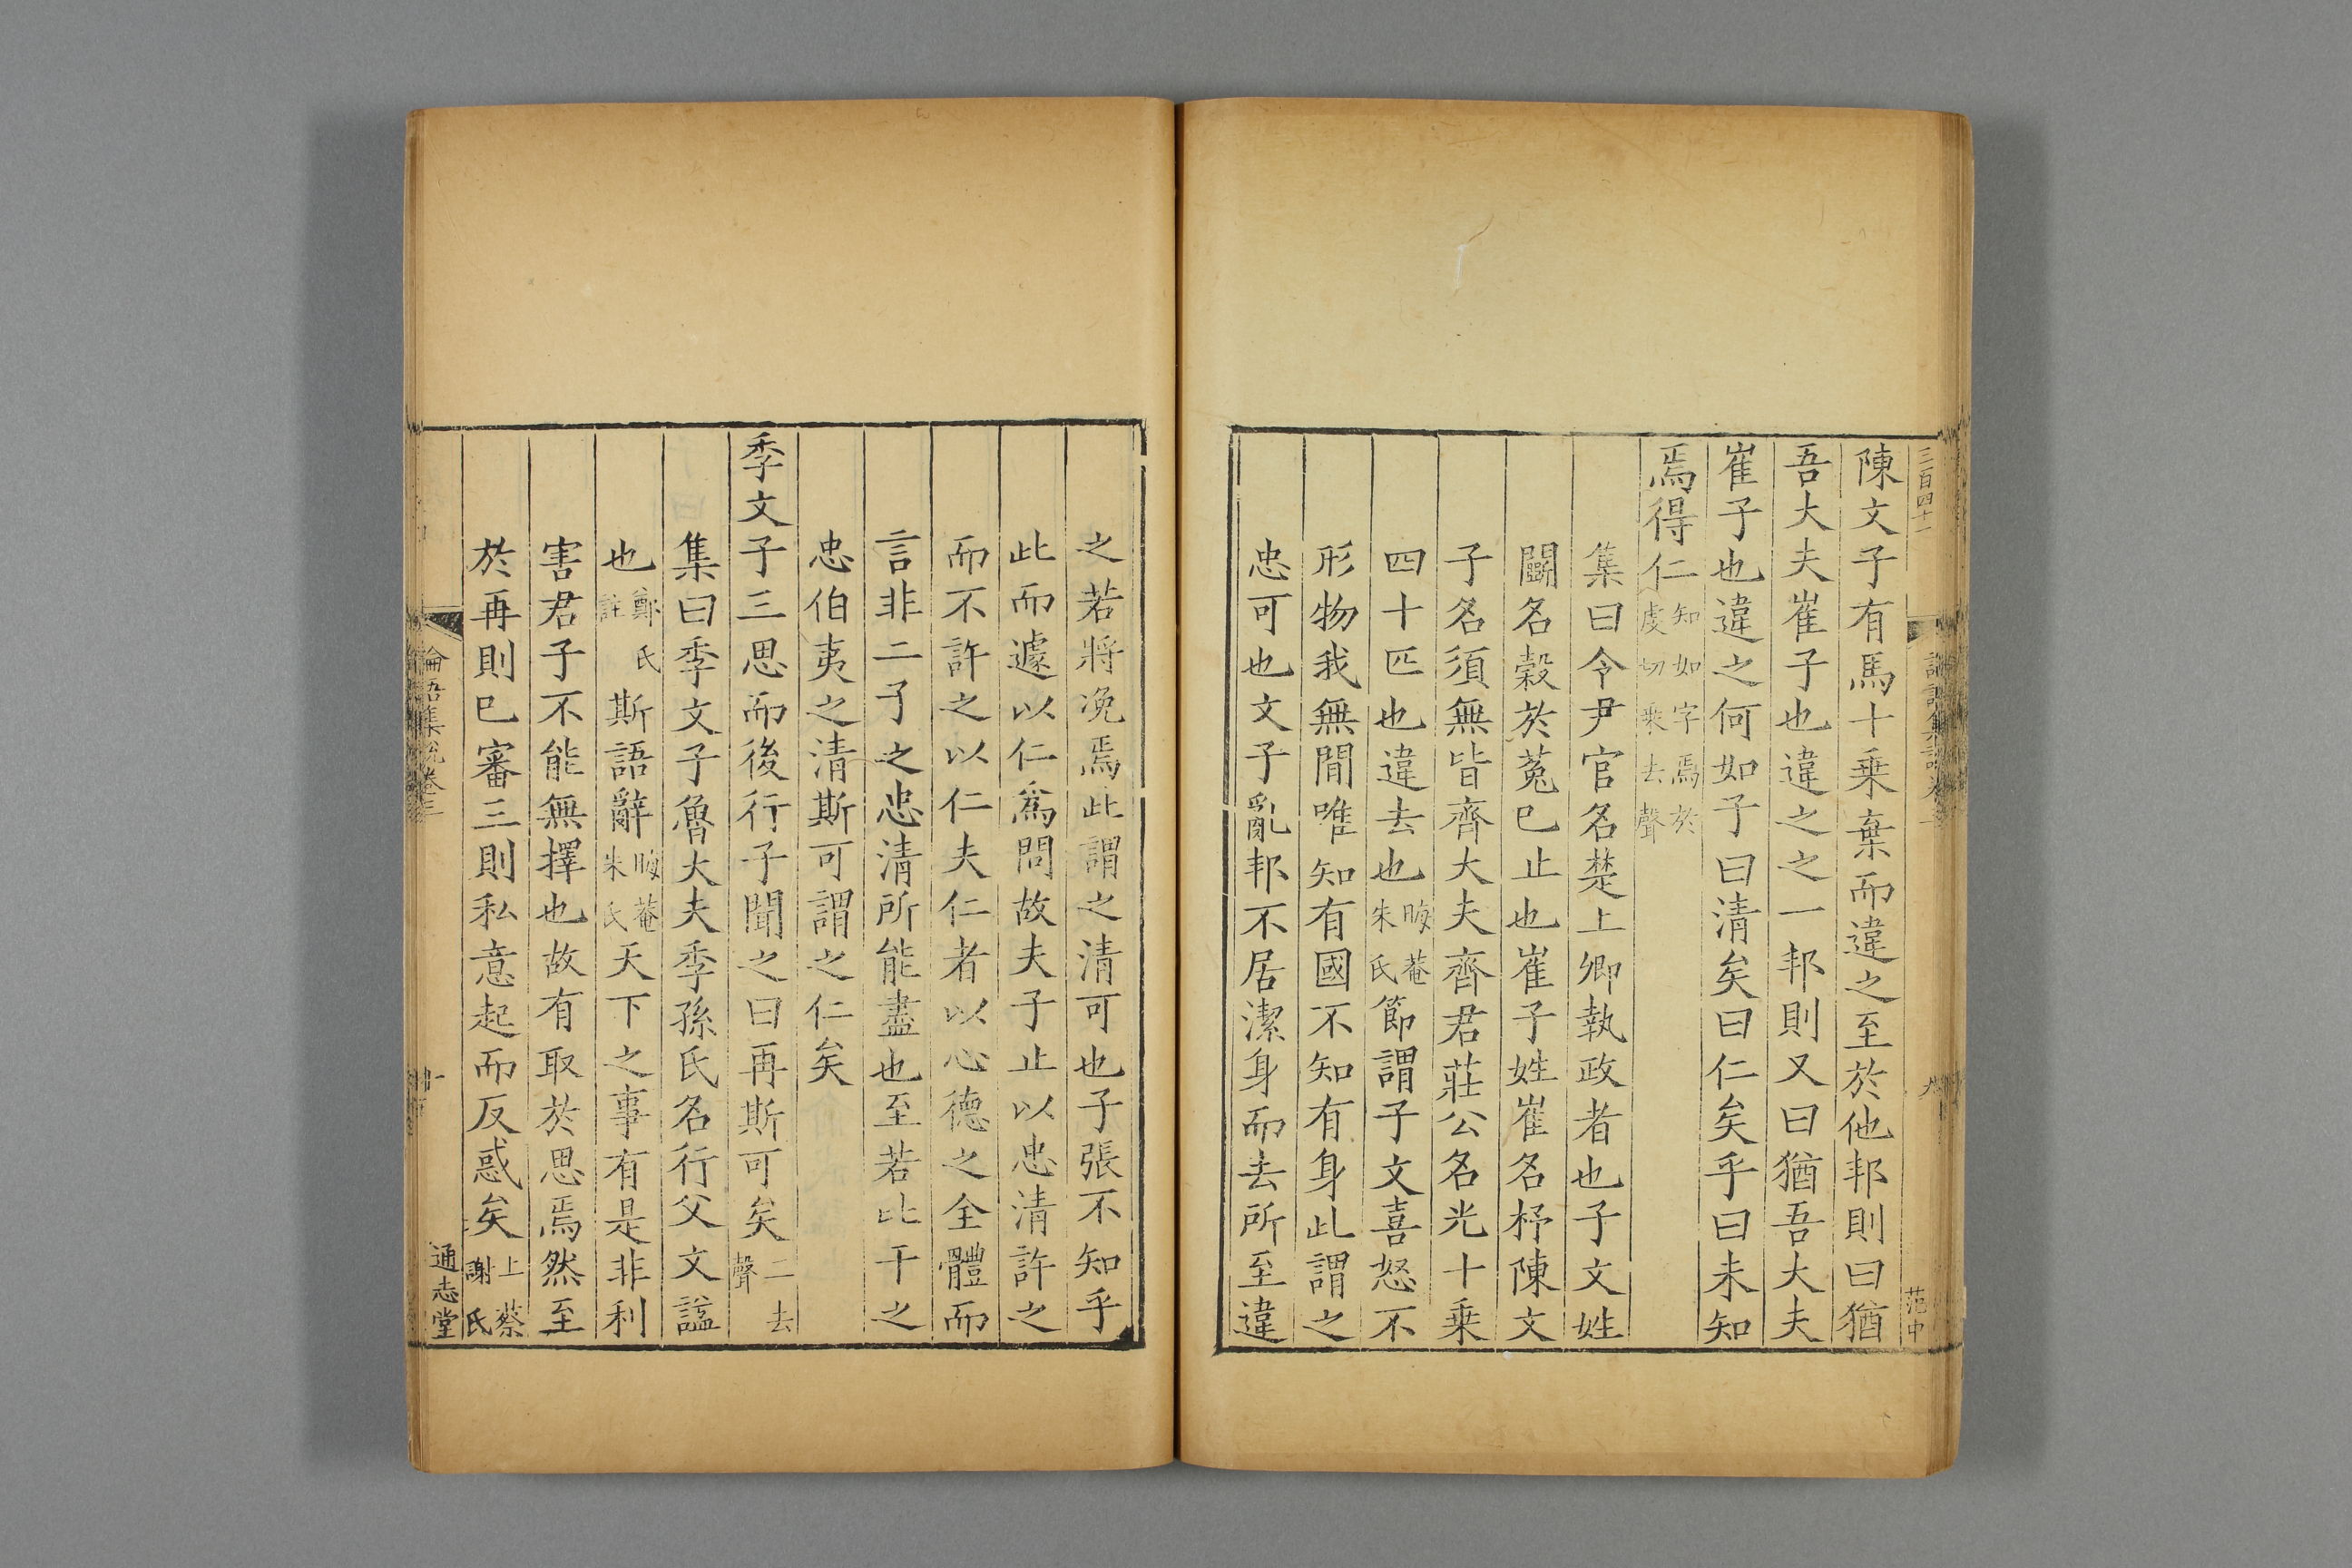 三百四十一
陳文子有馬十乗棄而違之至於他邦則曰猶
吾大夫崔子也違之之一邦則又曰猶吾大夫
崔子也違之何如子曰清矣曰仁矣乎曰未知
焉得仁知如字焉於虔切乘去聲
集曰令尹官名楚上卿執政者也子文姓
鬭名穀於菟巳止也崔子姓崔名杼陳文
子名須無皆齊大夫齊君莊公名光十乗
四十匹也違去也晦菴朱氏節謂子文喜怒不
形物我無間唯知有國不知有身此謂之
忠可也文子亂邦不居潔身而去所至違
九
范中
之若將浼焉此謂之清可也子張不知乎
此而遽以仁爲問故夫子止以忠清許之
而不許之以仁夫仁者以心德之全體而
言非二子之忠清所能盡也至若比干之
忠伯夷之清斯可謂之仁矣
季文子三思而後行子聞之曰再斯可矣二去聲
集曰季文子魯大夫季孫氏名行父文諡
也鄭氏註斯語辭晦菴朱氏天下之事有是非利
害君子不能無擇也故有取於思焉然至
於再則巳審三則私意起而反惑矣上蔡謝氏
論語集說卷三
通志堂